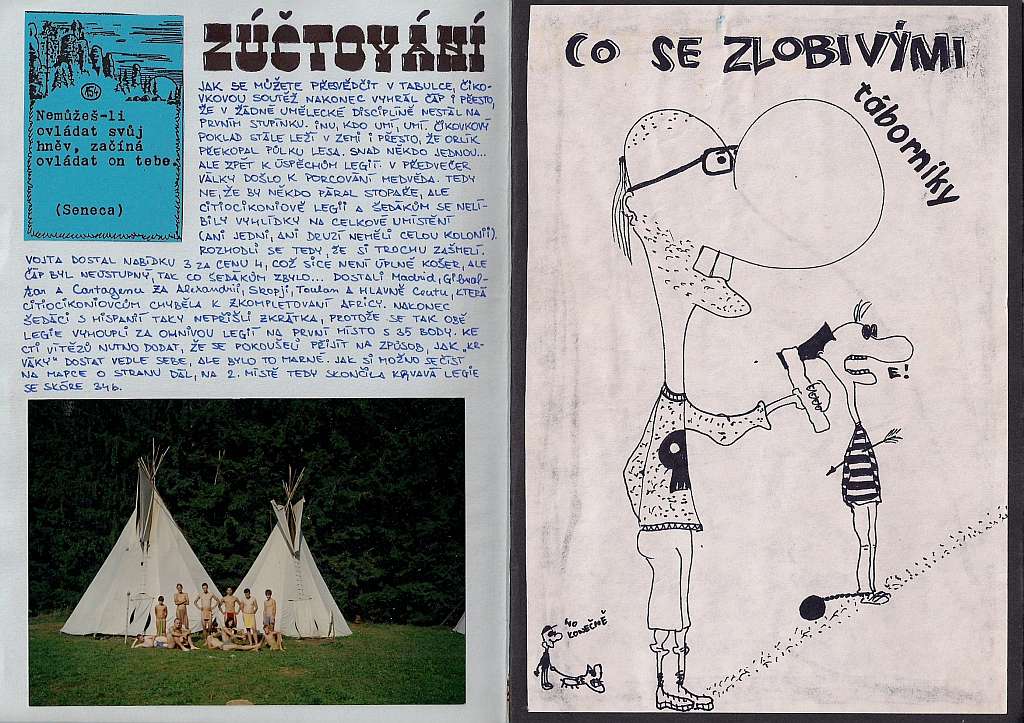 154
Nemůžeš-li
ovládat svůj
hněv, začíná
ovládat on tebe.
(Seneca)
ZÚČTOVÁNÍ
JAK SE MŮŽETE PŘESVĚDČIT V TABULCE, ČIKO-
VKOVOU SOUTĚŽ NAKONEC VYHRÁL ČÁP I PŘESTO,
ŽE V ŽÁDNÉ UMĚLECKÉ DISCIPLÍNĚ NESTÁL NA
PRVNÍM STUPÍNKU. INU, KDO UMÍ, UMÍ. ČIKOVKOVÝ
POKLAD STÁLE LEŽÍ V ZEMI I PŘESTO, ŽE ORLÍK
PŘEKOPAL PŮLKU LESA. SNAD NĚKDO JEDNOU...
ALE ZPĚT K ÚSPĚCHŮM LEGIÍ. V PŘEDVEČER
VÁLKY DOŠLO K PORCOVÁNÍ MEDVĚDA. TEDY
NE, ŽE BY NĚKDO PÁRAL STOPAŘE, ALE
CITIOCIKONIOVÉ LEGII A ŠEĎÁKŮM SE NELÍ-
BILY VYHLÍDKY NA CELKOVÉ UMÍSTĚNÍ
(ANI JEDNI, ANI DRUZÍ NEMĚLI CELOU KOLONII).
ROZHODLI SE TEDY, ŽE SI TROCHU ZAŠMELÍ.
VOJTA DOSTAL NABÍDKU 3 ZA CENU 4, COŽ SICE NENÍ ÚPLNĚ KOŠER, ALE
ČÁP BYL NEÚSTUPNÝ, TAK CO ŠEĎÁKŮM ZBYLO... DOSTALI Madrid, Gibral-
tar a Cartagenu ZA Alexandrii, Skopji, Toulon A HLAVNĚ Ceutu, KTERÁ
CITIOCIKONIOVCŮM CHYBĚLA K ZKOMPLETOVÁNÍ AFRICY. NAKONEC
ŠEĎÁCI S HISPANIÍ TAKY NEPŘIŠLI ZKRÁTKA, PROTOŽE SE TAK OBĚ
LEGIE VYHOUPLI ZA OHNIVOU LEGIÍ NA PRVNÍ MÍSTO S 35 BODY. KE
CTI VÍTĚZŮ NUTNO DODAT, ŽE SE POKOUŠELI PŘIJÍT NA ZPŮSOB, JAK „KR-
VÁKY" DOSTAT VEDLE SEBE, ALE BYLO TO MARNÉ. JAK SI MOŽNO SEČÍST
NA MAPCE O STRANU DÁL, NA 2. MÍSTĚ TEDY SKONČILA KRVAVÁ LEGIE
SE SKÓRE 34b.
CO SE ZLOBIVÝMI
táborníky
E!
NO
KONEČNĚ